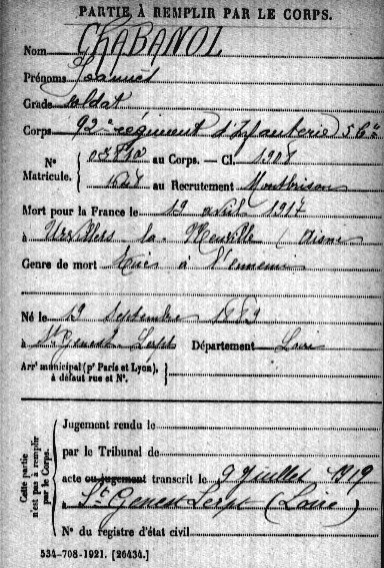 PARTIE À REMPLIR PAR LE CORPS.
Nom CHABANOL
Prénoms Joannès
Grade Soldat
Corps 92e régiment d'Infanterie 5 Cie
N° Matricule. { au Corps. — Cl. 1907
{ au Recrutement Montbrison
Mort pour la France le 19 avril 1917
à la Neuville (Aisne
Genre de mort Tué à l'ennemi
Né le 19 Septembre
à St Genest Lerpt Département Loire
Arrt municipal (pr Paris et Lyon), à défaut rue et N°. }
Cette partie n'est pas à remplir par le Corps.
Jugement rendu le
par le Tribunal de
acte ou jugement transcrit le 9 Juillet 1919
à St Genest Lerpt (Loire)
N° du registre d'état civil
534-708-1921. [26434.]